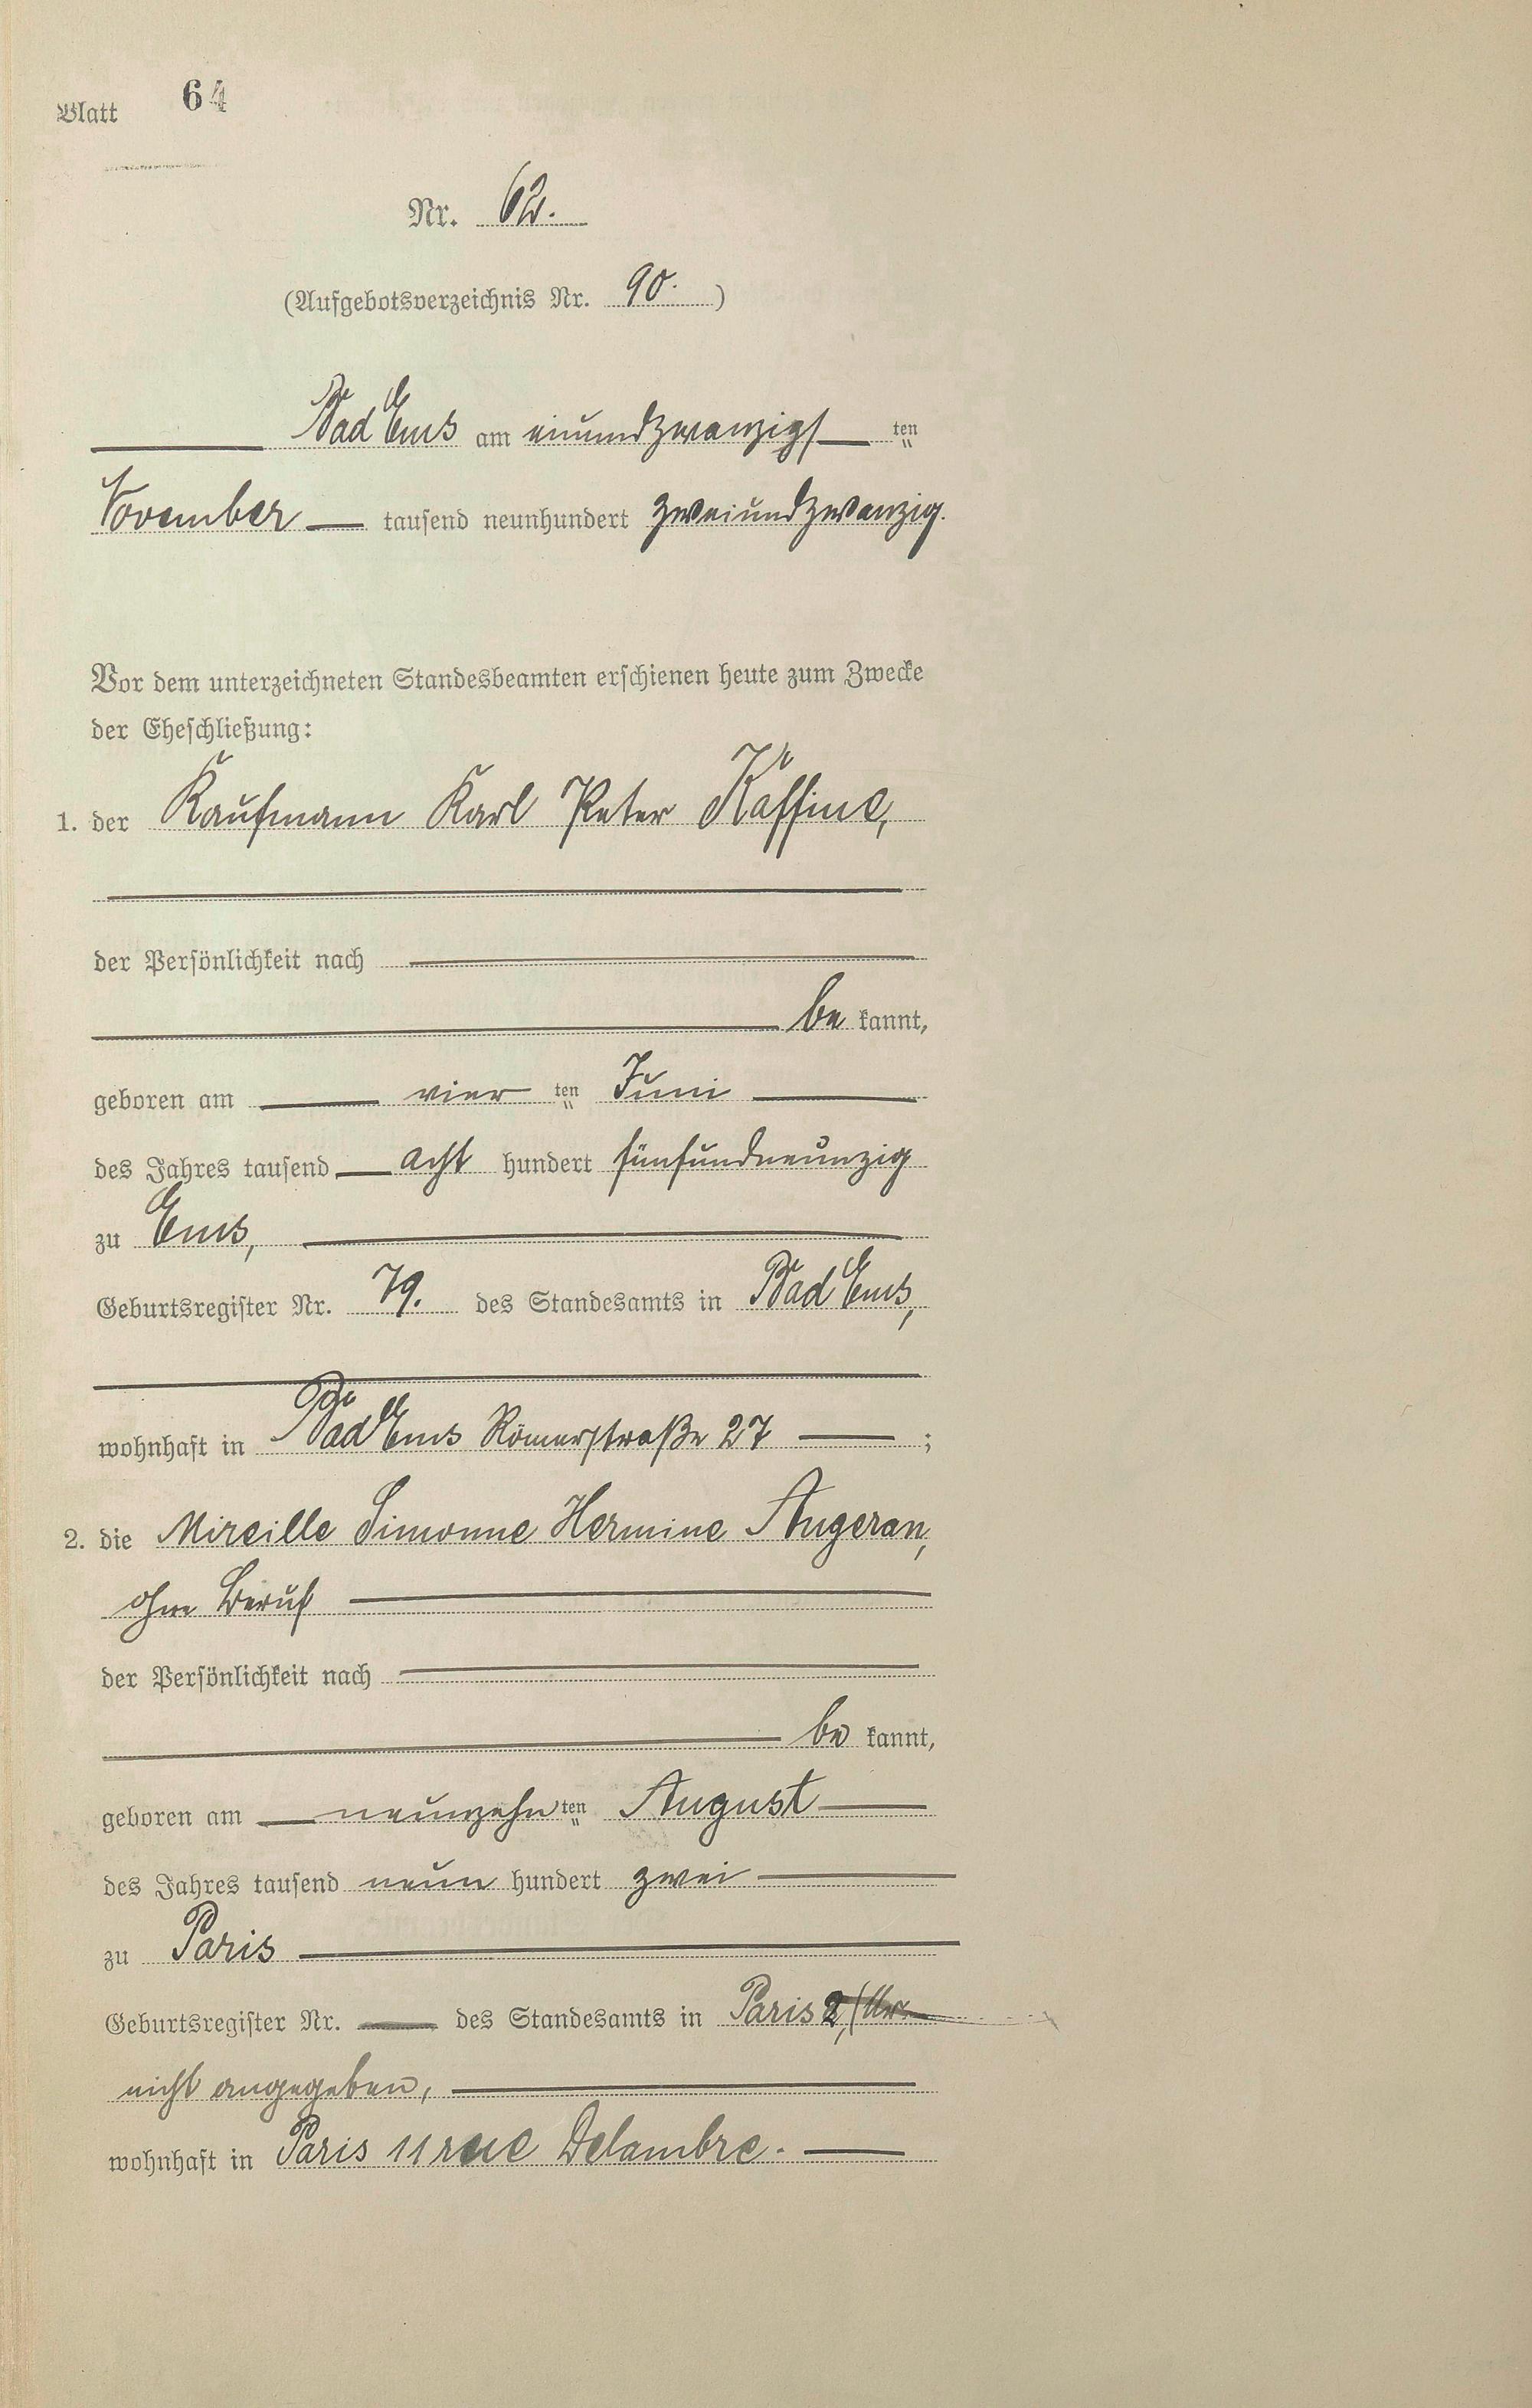 Blatt 64
Nr. 62.
(Aufgebotsverzeichnis Nr. 90.)
Bad Ems am einundzwanzigs ten
November tausend neunhundert zweiundzwanzig.
Vor dem unterzeichneten Standesbeamten erschienen heute zum Zwecke
der Eheschließung:
1. der Kaufmann Karl Peter Käffine,
der Persönlichkeit nach
be kannt,
geboren am vier ten Juni
des Jahres tausend acht hundert fünfundneunzig
zu Ems,
Geburtsregister Nr. 79. des Standesamts in Bad Ems,
wohnhaft in Bad Ems Römerstraße 27 ;
2. die Mireille Simonne Hermine Angeran,
ohne Beruf
der Persönlichkeit nach
be kannt,
geboren am neunzehn ten August
des Jahres tausend neun hundert zwei
zu Paris
Geburtsregister Nr. des Standesamts in Paris
nicht angegeben,
wohnhaft in Paris 11 rue Delambre.